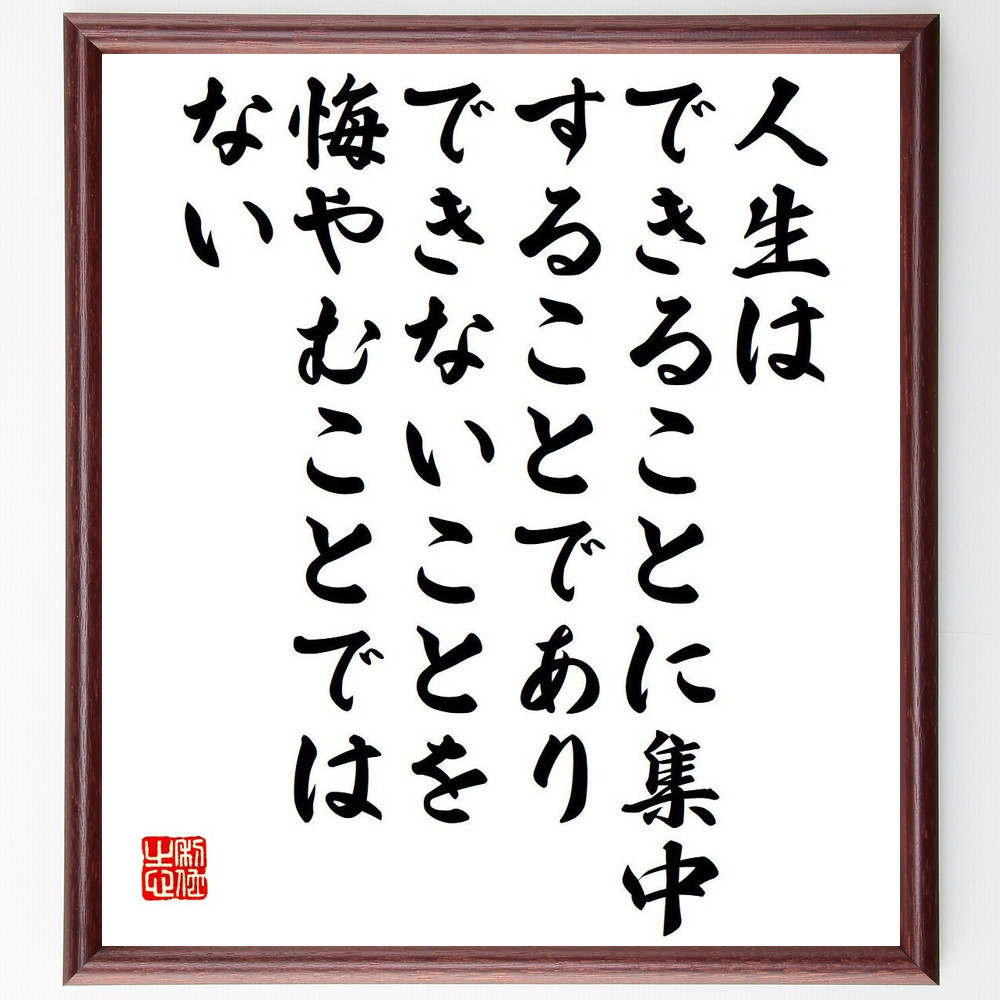 人生は
できることに集中
することであり
できないことを
悔やむことでは
ない